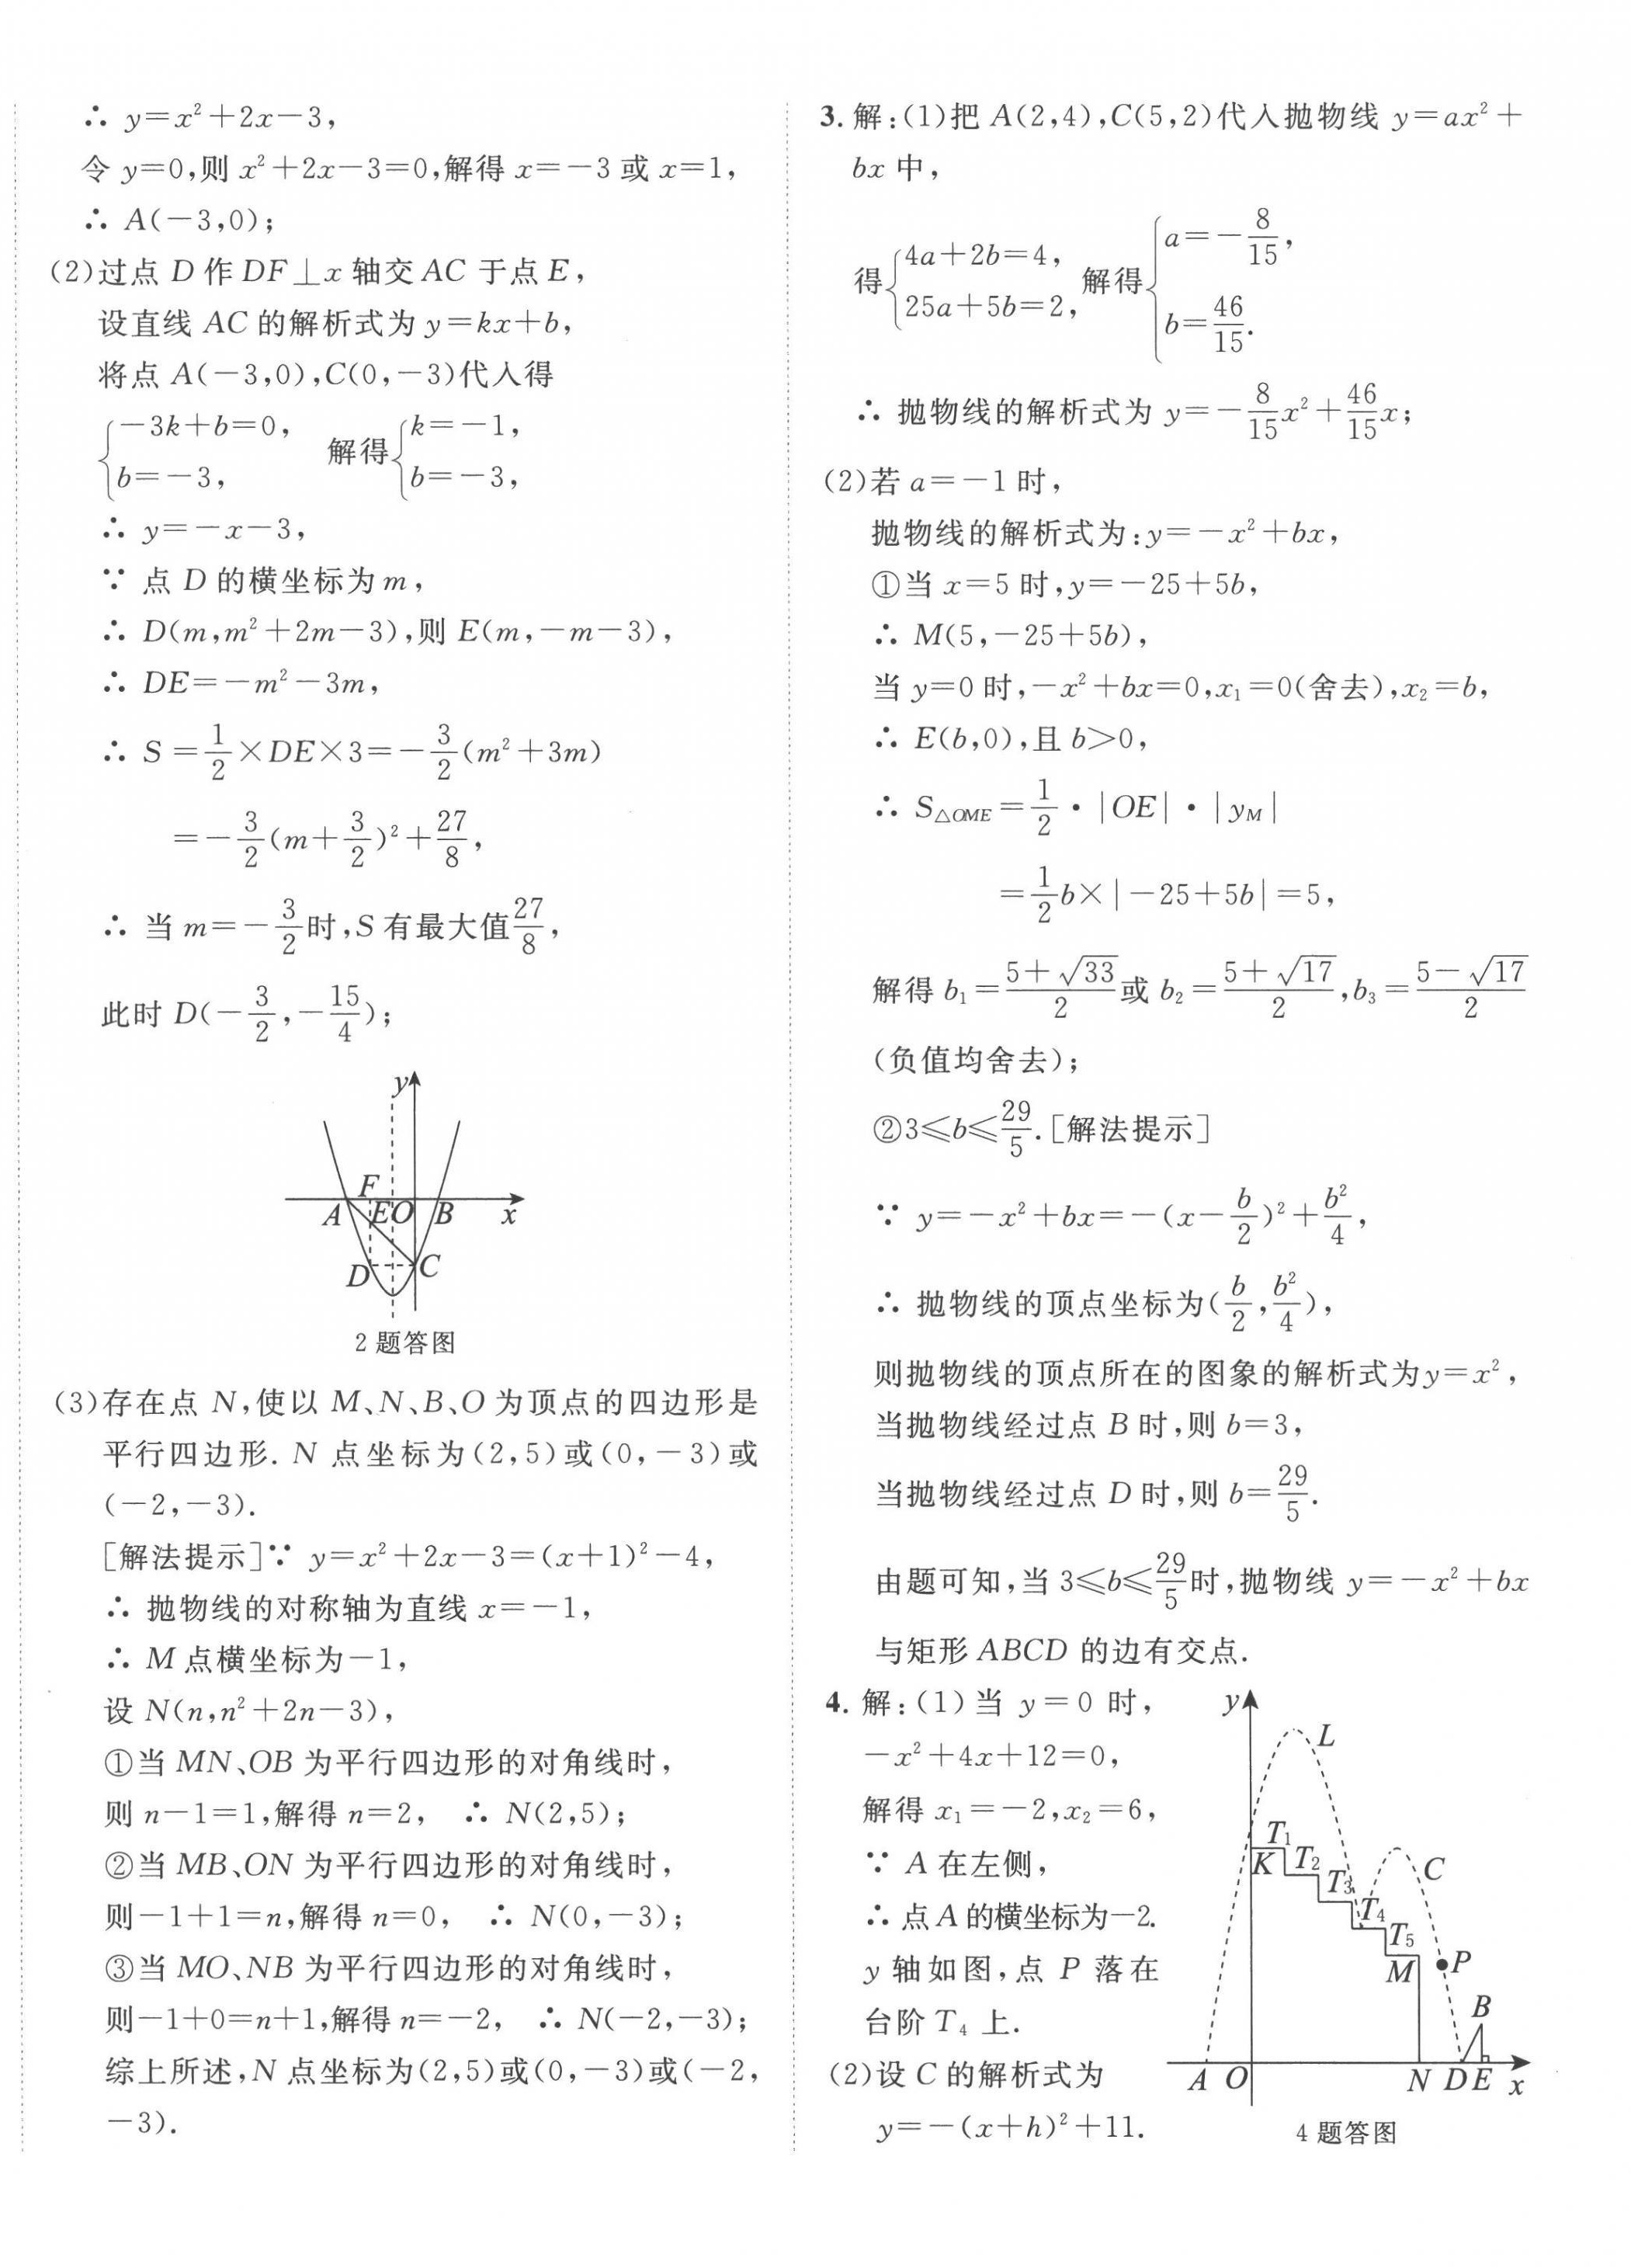 ∴ y=x²+2x-3,
令 y=0,则 x²+2x-3=0,解得 x=-3 或 x=1,
∴ A(-3,0);
(2)过点 D 作 DF⊥x 轴交 AC 于点 E,
设直线 AC 的解析式为 y=kx+b,
将点 A(-3,0),C(0,-3)代入得
{-3k+b=0, b=-3, 解得{k=-1, b=-3,
∴ y=-x-3,
∵ 点 D 的横坐标为 m,
∴ D(m,m²+2m-3),则 E(m,-m-3),
∴ DE=-m²-3m,
∴ S=1/2×DE×3=-3/2(m²+3m)
=-3/2(m+3/2)²+27/8,
∴ 当 m=-3/2时,S 有最大值27/8,
此时 D(-3/2,-15/4);
y
F
A E O B x
D C
2 题答图
(3)存在点 N,使以 M、N、B、O 为顶点的四边形是
平行四边形. N 点坐标为(2,5)或(0,-3)或
(-2,-3).
[解法提示]∵ y=x²+2x-3=(x+1)²-4,
∴ 抛物线的对称轴为直线 x=-1,
∴ M 点横坐标为-1,
设 N(n,n²+2n-3),
①当 MN、OB 为平行四边形的对角线时,
则 n-1=1,解得 n=2, ∴ N(2,5);
②当 MB、ON 为平行四边形的对角线时,
则-1+1=n,解得 n=0, ∴ N(0,-3);
③当 MO、NB 为平行四边形的对角线时,
则-1+0=n+1,解得 n=-2, ∴ N(-2,-3);
综上所述,N 点坐标为(2,5)或(0,-3)或(-2,
-3).
3. 解:(1)把 A(2,4),C(5,2)代入抛物线 y=ax²+
bx 中,
得{4a+2b=4, 25a+5b=2, 解得{a=-8/15, b=46/15.
∴ 抛物线的解析式为 y=-8/15x²+46/15x;
(2)若 a=-1 时,
抛物线的解析式为:y=-x²+bx,
①当 x=5 时,y=-25+5b,
∴ M(5,-25+5b),
当 y=0 时,-x²+bx=0,x₁=0(舍去),x₂=b,
∴ E(b,0),且 b>0,
∴ S△OME=1/2·|OE|·|yM|
=1/2b×|-25+5b|=5,
解得 b₁=(5+√33)/2或 b₂=(5+√17)/2,b₃=(5-√17)/2
(负值均舍去);
②3≤b≤29/5.[解法提示]
∵ y=-x²+bx=-(x-b/2)²+b²/4,
∴ 抛物线的顶点坐标为(b/2,b²/4),
则抛物线的顶点所在的图象的解析式为y=x²,
当抛物线经过点 B 时,则 b=3,
当抛物线经过点 D 时,则 b=29/5.
由题可知,当 3≤b≤29/5时,抛物线 y=-x²+bx
与矩形 ABCD 的边有交点.
4. 解:(1)当 y=0 时,
-x²+4x+12=0,
解得 x₁=-2,x₂=6,
∵ A 在左侧,
∴点 A 的横坐标为-2.
y 轴如图,点 P 落在
台阶 T₄ 上.
(2)设 C 的解析式为
y=-(x+h)²+11.
y
L
T₁
K T₂
T₃ C
T₄
T₅
M P
B
A O N D E x
4 题答图